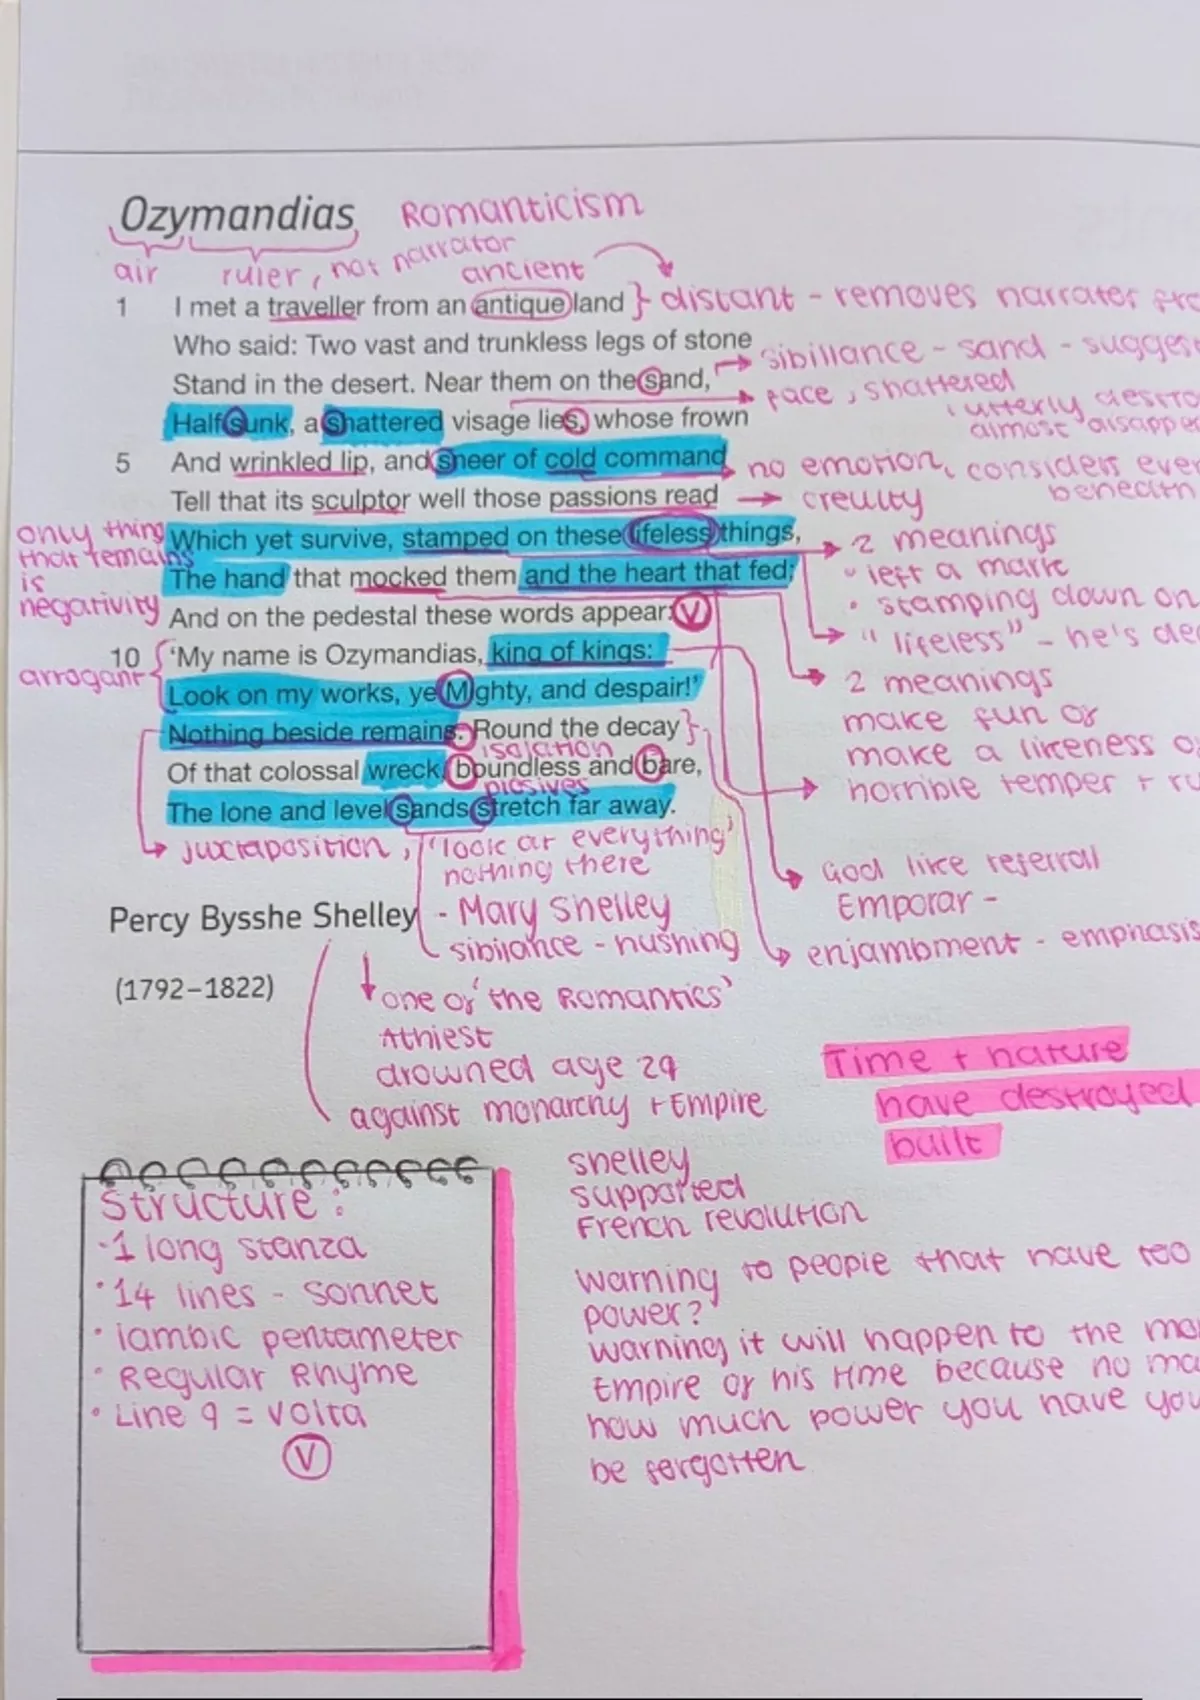 Ozymandias Romanticism
air ruler, not narrator
ancient
1 I met a traveller from an antique land } distant - removes narrator
Who said: Two vast and trunkless legs of stone
sibillance - sand -
Stand in the desert. Near them on the sand,
face, shattered
Half sunk, a shattered visage lies, whose frown
utterly
almost
5 And wrinkled lip, and sneer of cold command
no emotion, considers
beneath
Tell that its sculptor well those passions read
creulty
only thing that remains is negativity
Which yet survive, stamped on these lifeless things,
2 meanings
The hand that mocked them and the heart that fed;
• left a mark
• stamping down on
And on the pedestal these words appear: V
"lifeless" - he's
10 'My name is Ozymandias, king of kings:
arrogant
2 meanings
Look on my works, ye Mighty, and despair!'
make fun or
Nothing beside remains. Round the decay }
make a likeness
isolation
Of that colossal wreck, boundless and bare,
plosives
horrible temper +
The lone and level sands stretch far away.
juxtaposition, 'look at everything'
nothing there
God like referral
Emporar -
Percy Bysshe Shelley - Mary Shelley
sibilance - hushing
enjambment - emphasis
(1792–1822)
one of 'the Romantics'
Athiest
drowned age 29
against monarchy + Empire
Time + nature
have destroyed
built
Structure:
• 1 long stanza
• 14 lines - sonnet
• iambic pentameter
• Regular Rhyme
• Line 9 = volta
V
shelley
supported
French revolution
warning to people that have too
power?
warning it will happen to the
Empire of his time because no
how much power you have
be forgotten